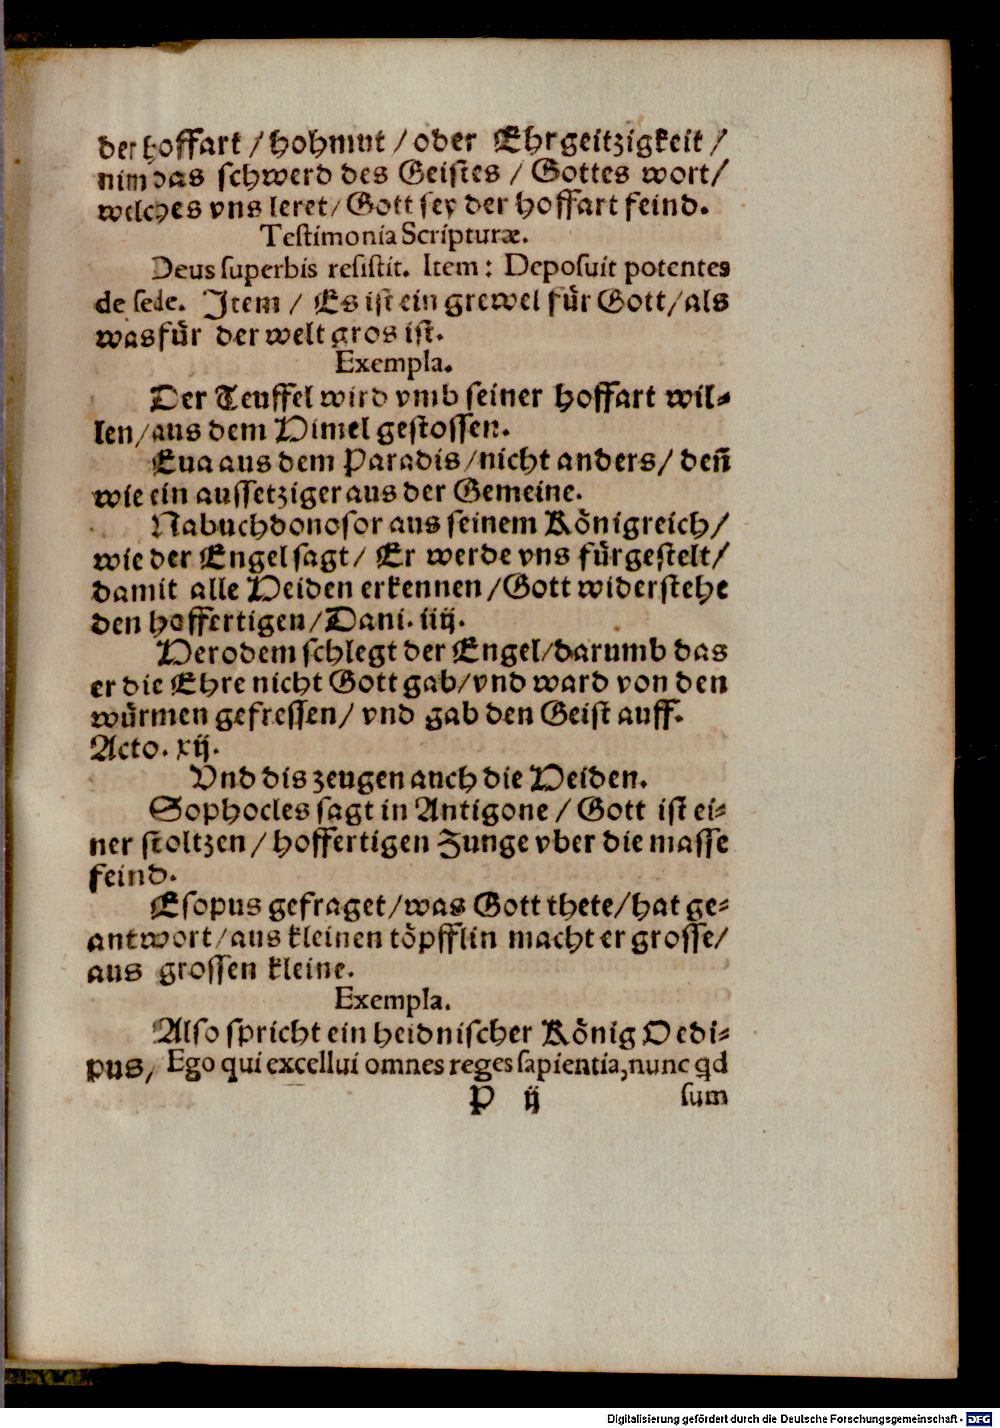 der hoffart / hohmut / oder Ehrgeitzigkeit /
nim das schwerd des Geistes / Gottes wort /
welches vns leret / Gott sey der hoffart feind.
Testimonia Scripturæ.
Deus superbis resistit. Item: Deposuit potentes
de sede. Item / Es ist ein grewel für Gott / als
was für der welt gros ist.
Exempla.
Der Teuffel wird vmb seiner hoffart wil-
len / aus dem Himel gestossen.
Eua aus dem Paradis / nicht anders / deñ
wie ein aussetziger aus der Gemeine.
Nabuchdonosor aus seinem Königreich /
wie der Engel sagt / Er werde vns fürgestelt /
damit alle Heiden erkennen / Gott widerstehe
den hoffertigen / Dani. iiij.
Herodem schlegt der Engel / darumb das
er die Ehre nicht Gott gab / vnd ward von den
würmen gefressen / vnd gab den Geist auff.
Acto. xij.
Vnd dis zeugen auch die Heiden.
Sophocles sagt in Antigone / Gott ist ei-
ner stoltzen / hoffertigen Zunge vber die masse
feind.
Esopus gefraget / was Gott thete / hat ge-
antwort / aus kleinen töpfflin macht er grosse /
aus grossen kleine.
Exempla.
Also spricht ein heidnischer König Oedi-
pus, Ego qui excellui omnes reges sapientia, nunc qd
P ij sum
Digitalisierung gefördert durch die Deutsche Forschungsgemeinschaft - DFG